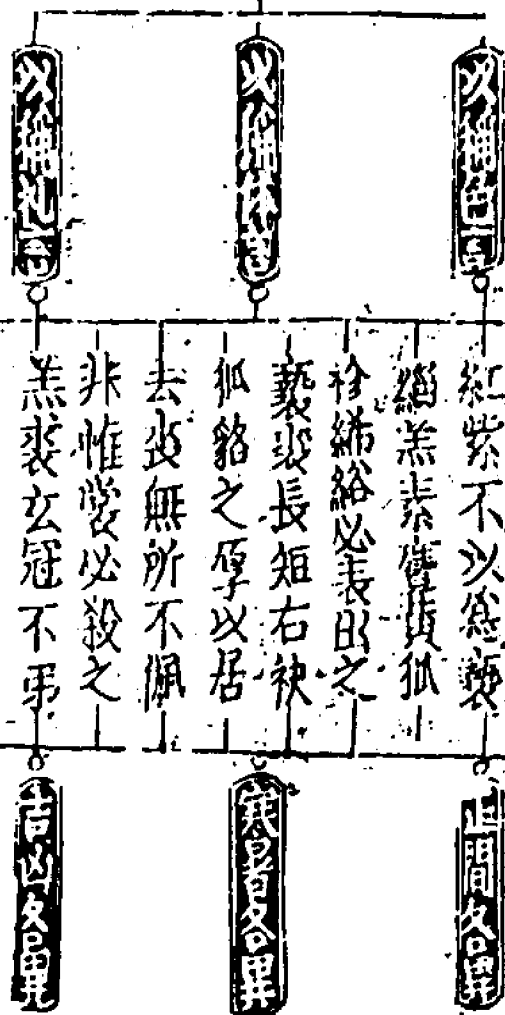 以稱色言
以稱体言
以稱礼言
紅紫不以為褻
緇羔素麑黃狐
袗絺綌必表出之
褻裘長短右袂
狐貉之厚以居
去喪無所不佩
非惟裳必殺之
羔裘玄冠不弔
正間各異
寒暑各異
吉凶各異